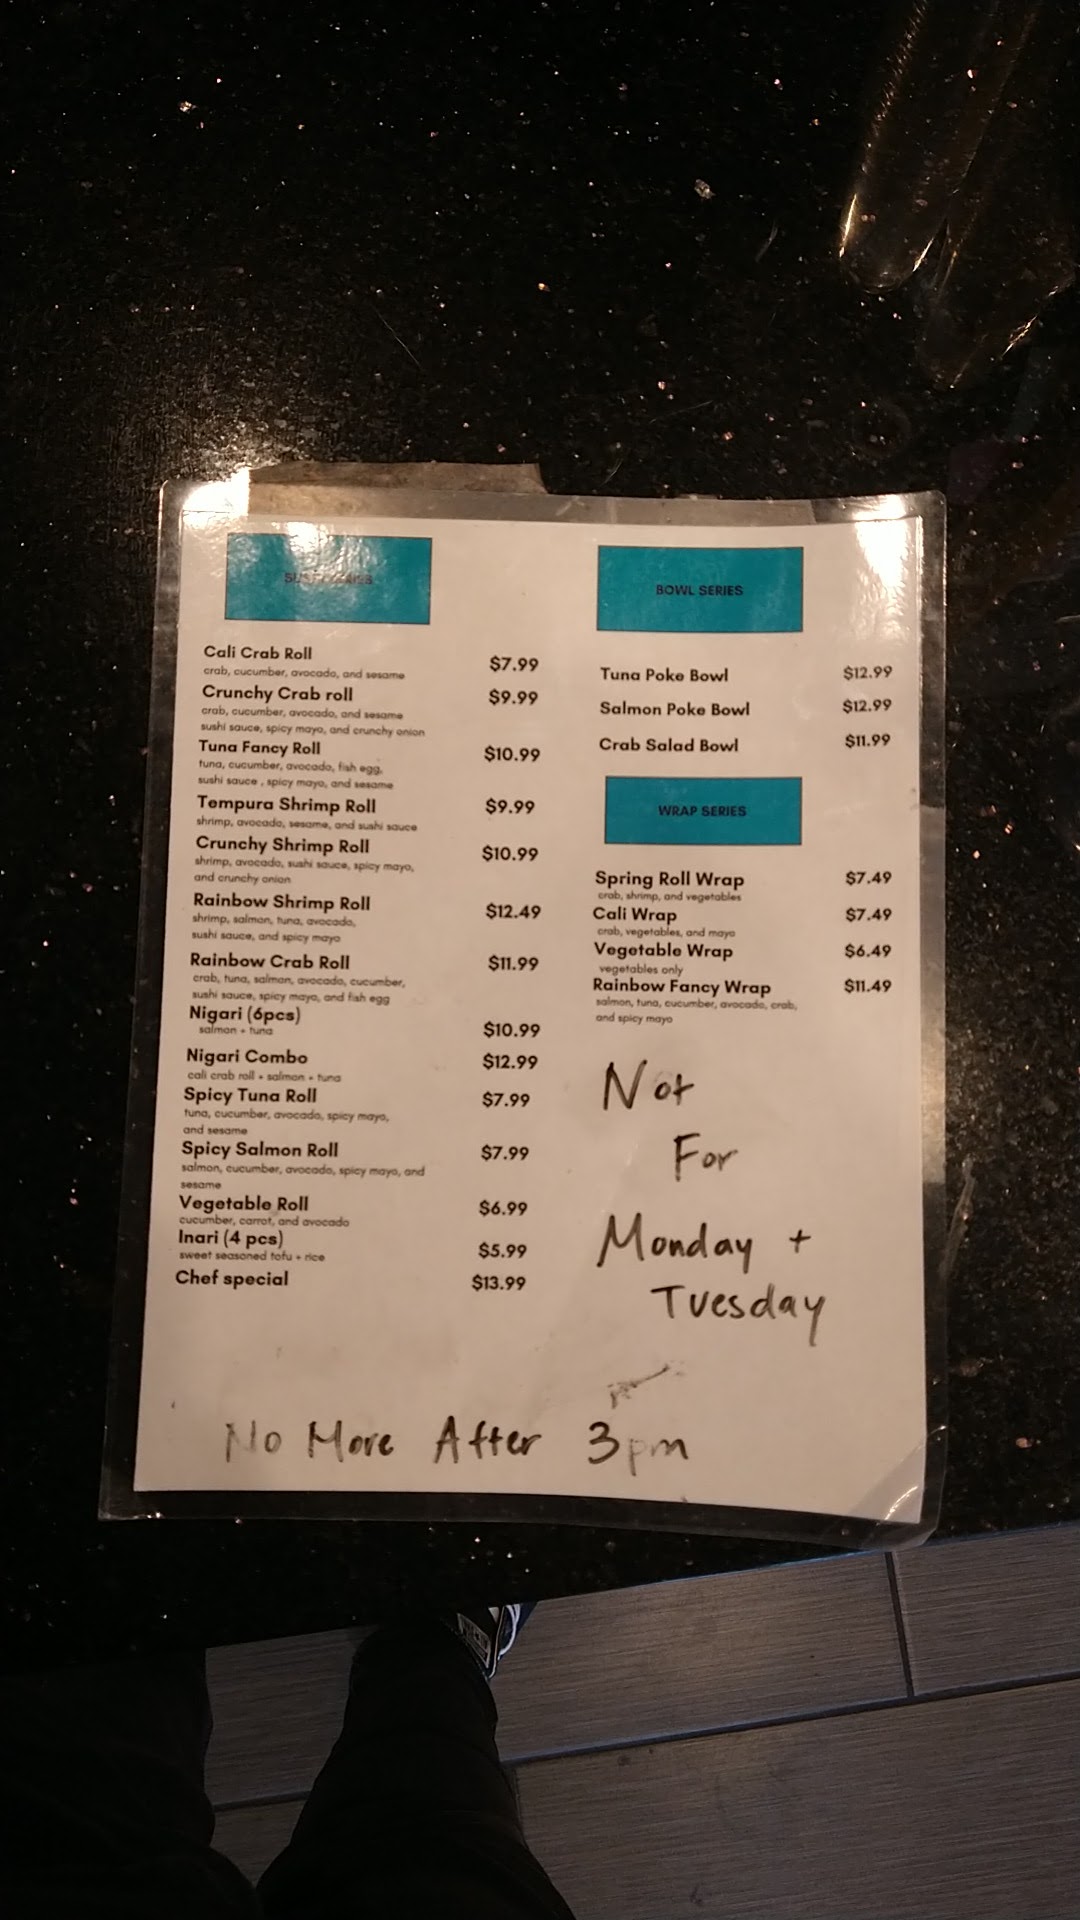 BOWL SERIES
Cali Crab Roll $7.99
crab, cucumber, avocado, and sesame
Crunchy Crab roll $9.99
crab, cucumber, avocado, and sesame
sushi sauce, spicy mayo, and crunchy onion
Tuna Fancy Roll $10.99
tuna, cucumber, avocado, fish egg,
sushi sauce , spicy mayo, and sesame
Tempura Shrimp Roll $9.99
shrimp, avocado, sesame, and sushi sauce
Crunchy Shrimp Roll $10.99
shrimp, avocado, sushi sauce, spicy mayo,
and crunchy onion
Rainbow Shrimp Roll $12.49
shrimp, salmon, tuna, avocado,
sushi sauce, and spicy mayo
Rainbow Crab Roll $11.99
crab, tuna, salmon, avocado, cucumber,
sushi sauce, spicy mayo, and fish egg
Nigari (6pcs)
salmon + tuna $10.99
Nigari Combo $12.99
cali crab roll + salmon + tuna
Spicy Tuna Roll $7.99
tuna, cucumber, avocado, spicy mayo,
and sesame
Spicy Salmon Roll $7.99
salmon, cucumber, avocado, spicy mayo, and
sesame
Vegetable Roll $6.99
cucumber, carrot, and avocado
Inari (4 pcs) $5.99
sweet seasoned tofu + rice
Chef special $13.99
Tuna Poke Bowl $12.99
Salmon Poke Bowl $12.99
Crab Salad Bowl $11.99
WRAP SERIES
Spring Roll Wrap $7.49
crab, shrimp, and vegetables
Cali Wrap $7.49
crab, vegetables, and mayo
Vegetable Wrap $6.49
vegetables only
Rainbow Fancy Wrap $11.49
salmon, tuna, cucumber, avocado, crab,
and spicy mayo
Not
For
Monday +
Tuesday
No More After 3pm